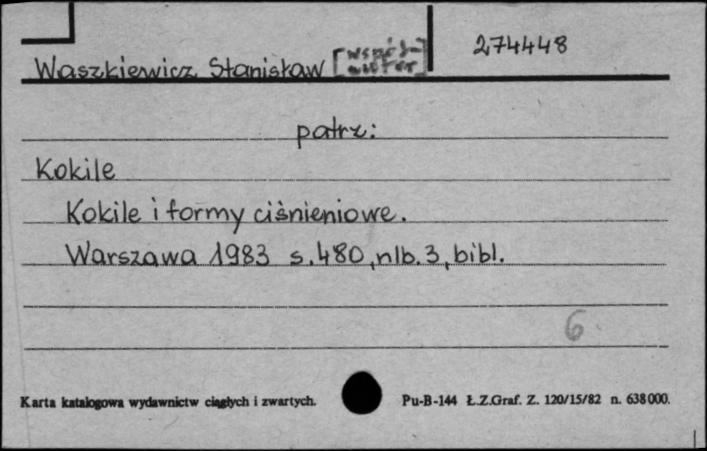 274448
Waszkiewicz Stanisław [współ-
autor]
patrz:
Kokile
Kokile i formy ciśnieniowe.
Warszawa 1983 s.480, nlb.3, bibl.
6
Karta katalogowa wydawnictw ciągłych i zwartych. Pu-B-144 Ł.Z.Graf. Z. 120/15/82 n. 638000.